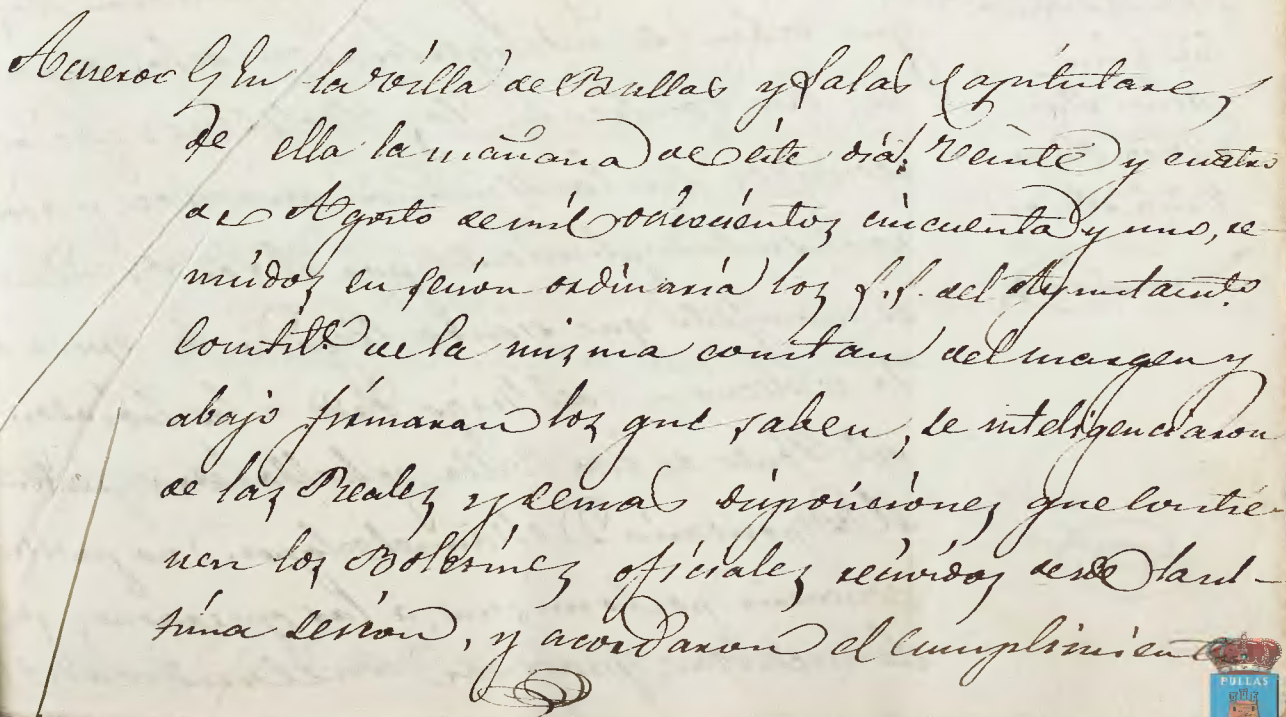 Acuerdo En la villa de Bullas y salas Capitulares
de ella la mañana de este dia veinte y cuatro
de Agosto de mil ochocientos cincuenta y uno, re-
unidos en sesion ordinaria los S.S. del Ayuntamto.
Constitl. de la misma constan del margen y
abajo firmaran los que saben, se inteligenciaron
de las Reales y demas disposiciones que contie-
nen los Boletines oficiales recividos desde la ul-
tima sesion, y acordaron el cumplimien
BULLAS